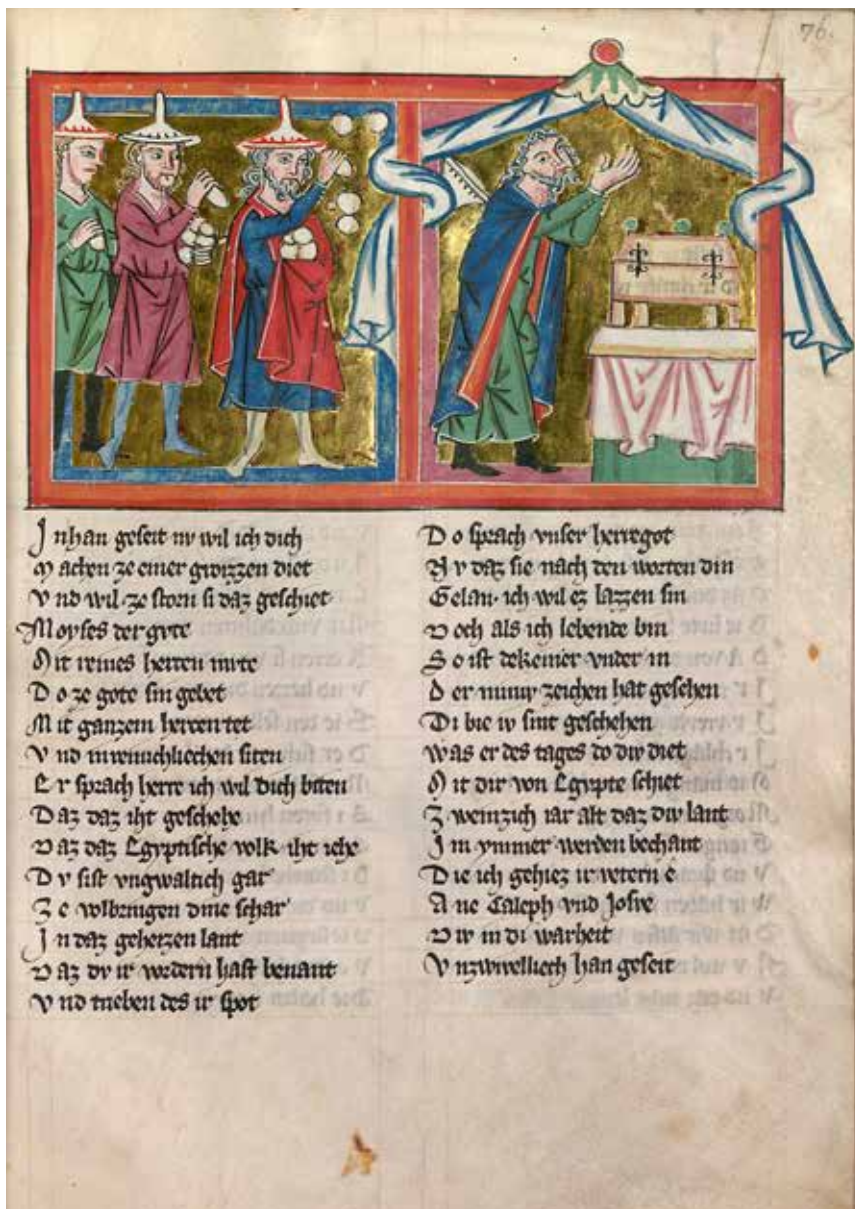 76.
I nhan geseit nv wil ich dich
M achen ze einer grozzen diet
V nd wil ze storn si daz geschiet
Moyses der gvte
M it reines herren mvte
D o ze gote sin gebet
M it ganzem hercen tet
V nd
E r sprach herre ich wil dich biten
D az daz iht geschehe
D az daz Egyptische volk iht iehe
D v sist vngwaltich gar
Z e volbringen dine schar
I n daz geheizen lant
D az dv ir vetern hast benant
V nd trieben des ir spot
D o sprach vnser herregot
N v daz sie nach den worten din
G elan. ich wil ez lazzen sin
D och als ich lebende bin
S o ist dekeiner vnder in
D er minw zeichen hat gesehen
D i bie iv sint geschehen
W as er des tages do diw diet
M it dir von Egypte schiet
Z weinzich iar alt daz diw lant
I m ymmer werden bechant
D ie ich gehiez ir vetern e
A ne Caleph vnd Josve
D iv in di warheit
V nzwivellich han geseit